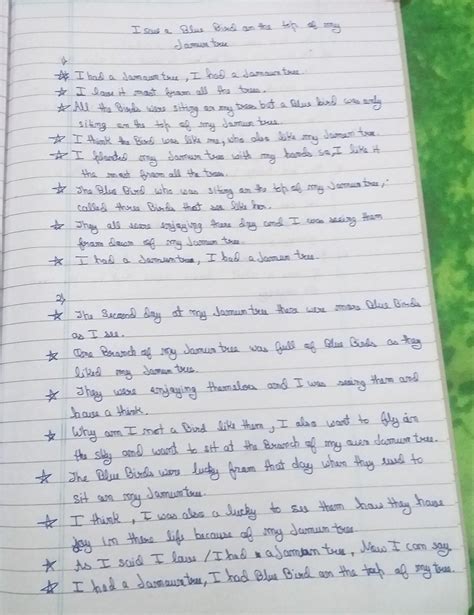 I saw a Blue Bird on the top of my
Jamun tree
1)
☆ I had a Jamaun tree, I had a Jamaun tree.
☆ I love it most from all the trees.
☆ All the Birds were siting on my tree, but a Blue bird was only
siting on the top of my Jamun tree.
☆ I think the Bird was like me, who also like my Jamun tree.
☆ I planted my Jamun tree with my hands so, I like it
the most from all the trees.
☆ The Blue Bird who was siting on the top of my Jamun tree,
called three Birds that was like her.
☆ They all were enjoying there day and I was seeing them
from down of my Jamun tree.
☆ I had a Jamun tree, I had a Jamun tree.
2)
☆ The Second day at my Jamun tree there were more Blue Birds
as I see.
☆ One Branch of my Jamun tree was full of Blue Birds as they
liked my Jamun tree.
☆ They were enjoying themselves and I was seeing them and
have a think.
☆ Why am I not a Bird like them, I also want to fly in
the sky and want to sit at the Branch of my own Jamun tree.
☆ The Blue Birds were lucky from that day when they used to
sit on my Jamun tree.
☆ I think, I was also a lucky to see them how they have
joy in there life because of my Jamun tree.
☆ As I said I love / I had a Jamaun tree, Now I can say
☆ I had a Jamaun tree, I had Blue Bird on the top of my tree